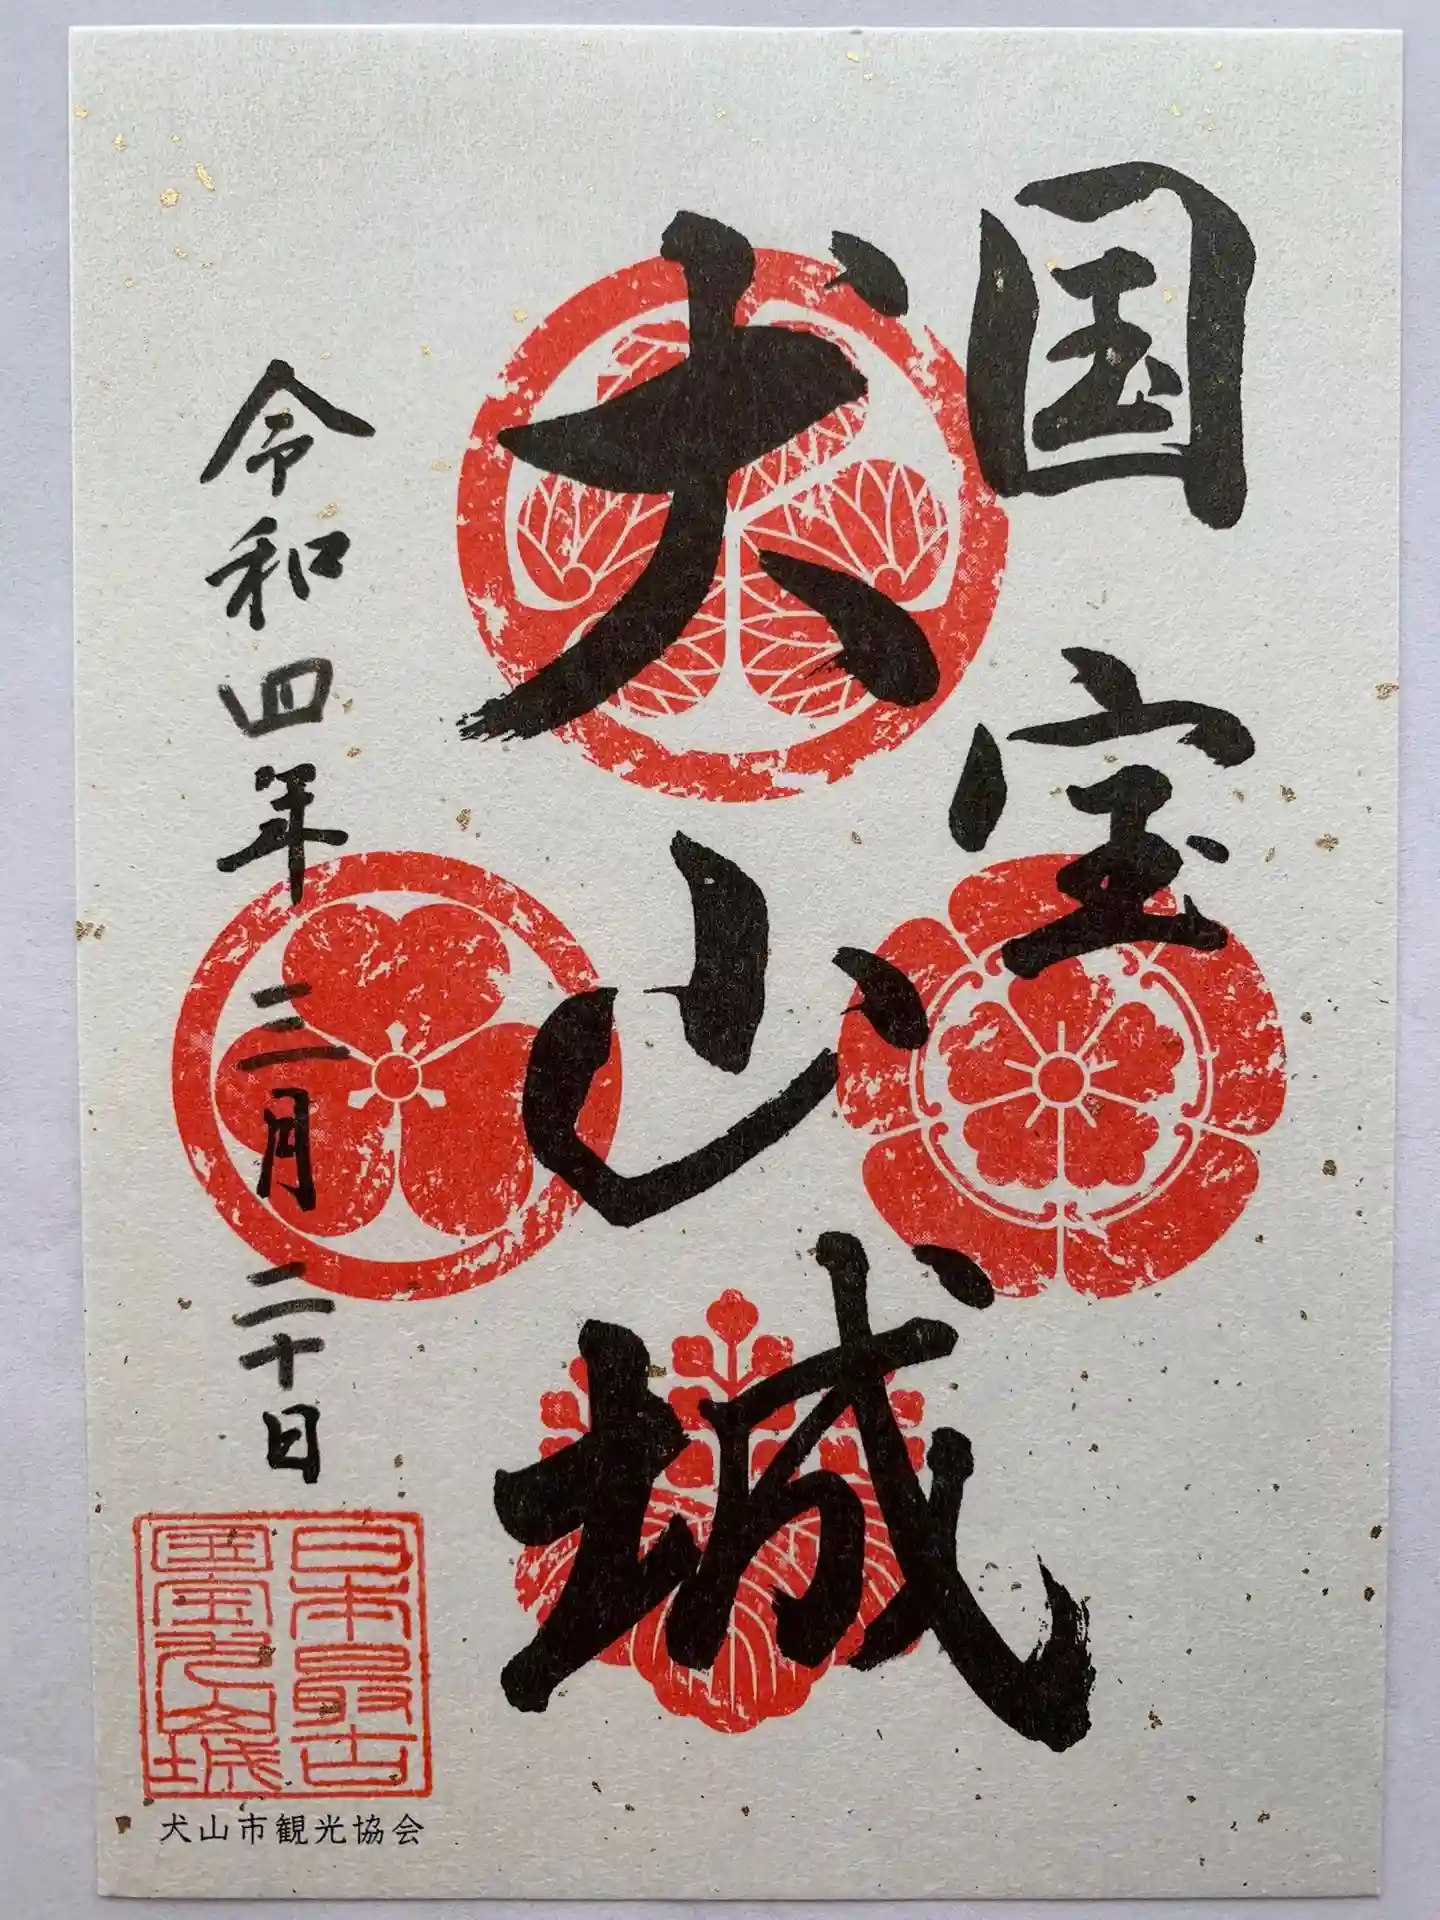 国宝
犬山城
令和四年三月二十日
日本最古
国宝犬山城
犬山市観光協会